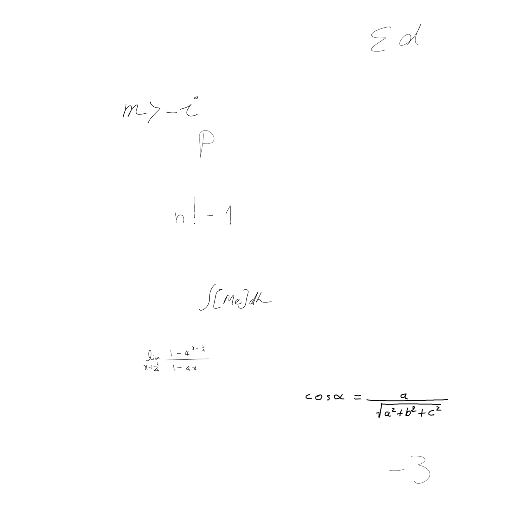 Σ d
m > -i
P
n! - 1
∫[Me]dh
lim x→1/2 (1 - 4^(x-1/2))/(1 - 4x)
cos α = a/√(a² + b² + c²)
-3